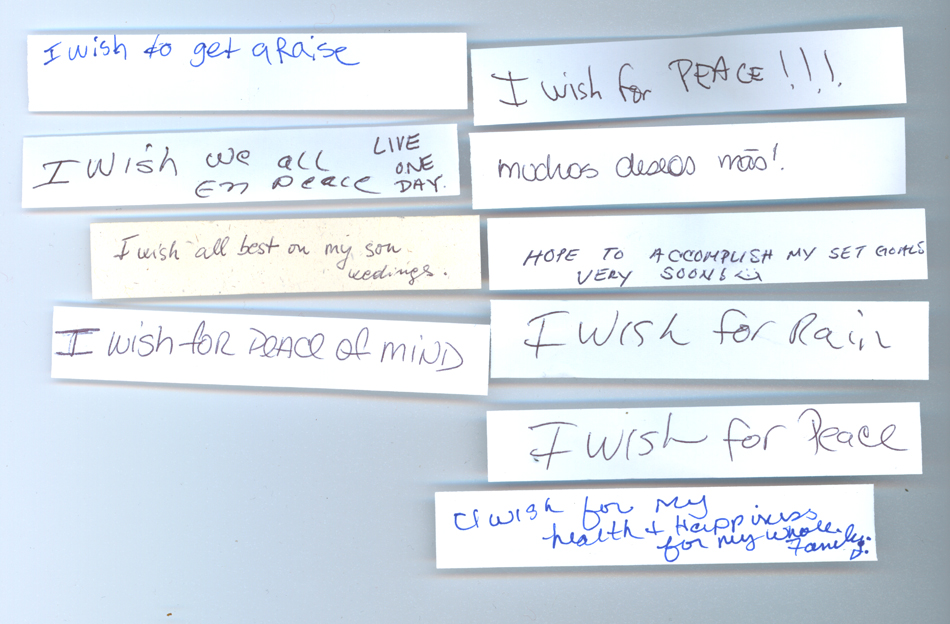 I wish to get a Raise
I wish for PEACE!!!!
I Wish we all LIVE
En peace ONE
DAY.
muchos deseos más!
I wish all best on my son
wedings.
HOPE TO ACCOMPLISH MY SET GOALS
VERY SOON!
I wish for peace of MIND
I Wish for Rain
I Wish for Peace
I wish for my
health + Happiness
for my whole
Family.